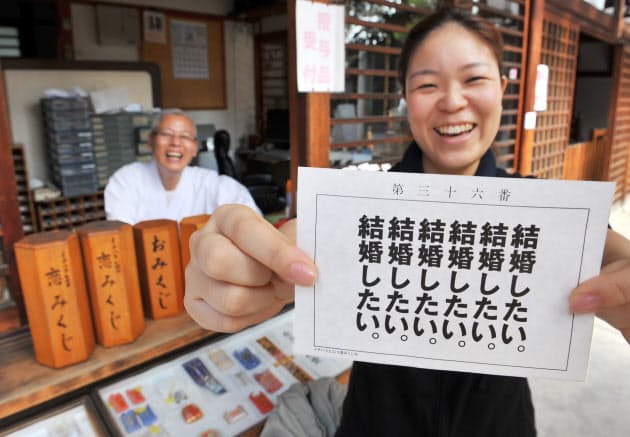 贈与品
受付
第三十六番
結婚したい。
結婚したい。
結婚したい。
結婚したい。
結婚したい。
結婚したい。
おみくじ
恋みくじ
恋みくじ